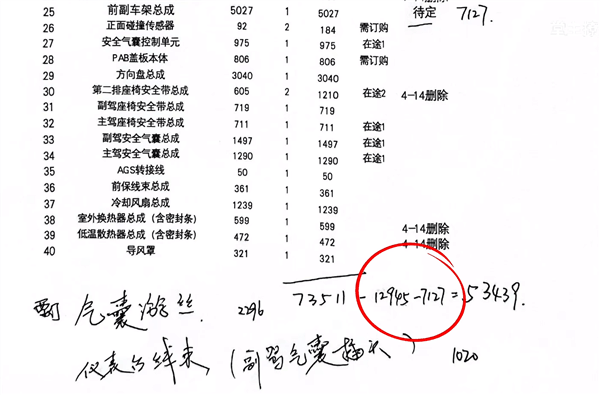 4-14删除
25 前副车架总成 5027 1 5027 待定 7127.
26 正面碰撞传感器 92 2 184 需订购
27 安全气囊控制单元 975 1 975 在途1
28 PAB盖板本体 806 1 806 需订购
29 方向盘总成 3040 1 3040
30 第二排座椅安全带总成 605 2 1210 在途2 4-14删除
31 副驾座椅安全带总成 719 1 719
32 主驾座椅安全带总成 711 1 711 在途1
33 副驾安全气囊总成 1497 1 1497 在途1
34 主驾安全气囊总成 1290 1 1290 在途1
35 AGS转接线 50 1 50
36 前保线束总成 361 1 361
37 冷却风扇总成 1239 1 1239
38 室外换热器总成(含密封条) 599 1 599 4-14删除
39 低温散热器总成(含密封条) 472 1 472 4-14删除
40 导风罩 321 1 321
73511-12945-7127=53439.
气囊游丝. 2296
仪表台线束 (副驾气囊插头) 1020